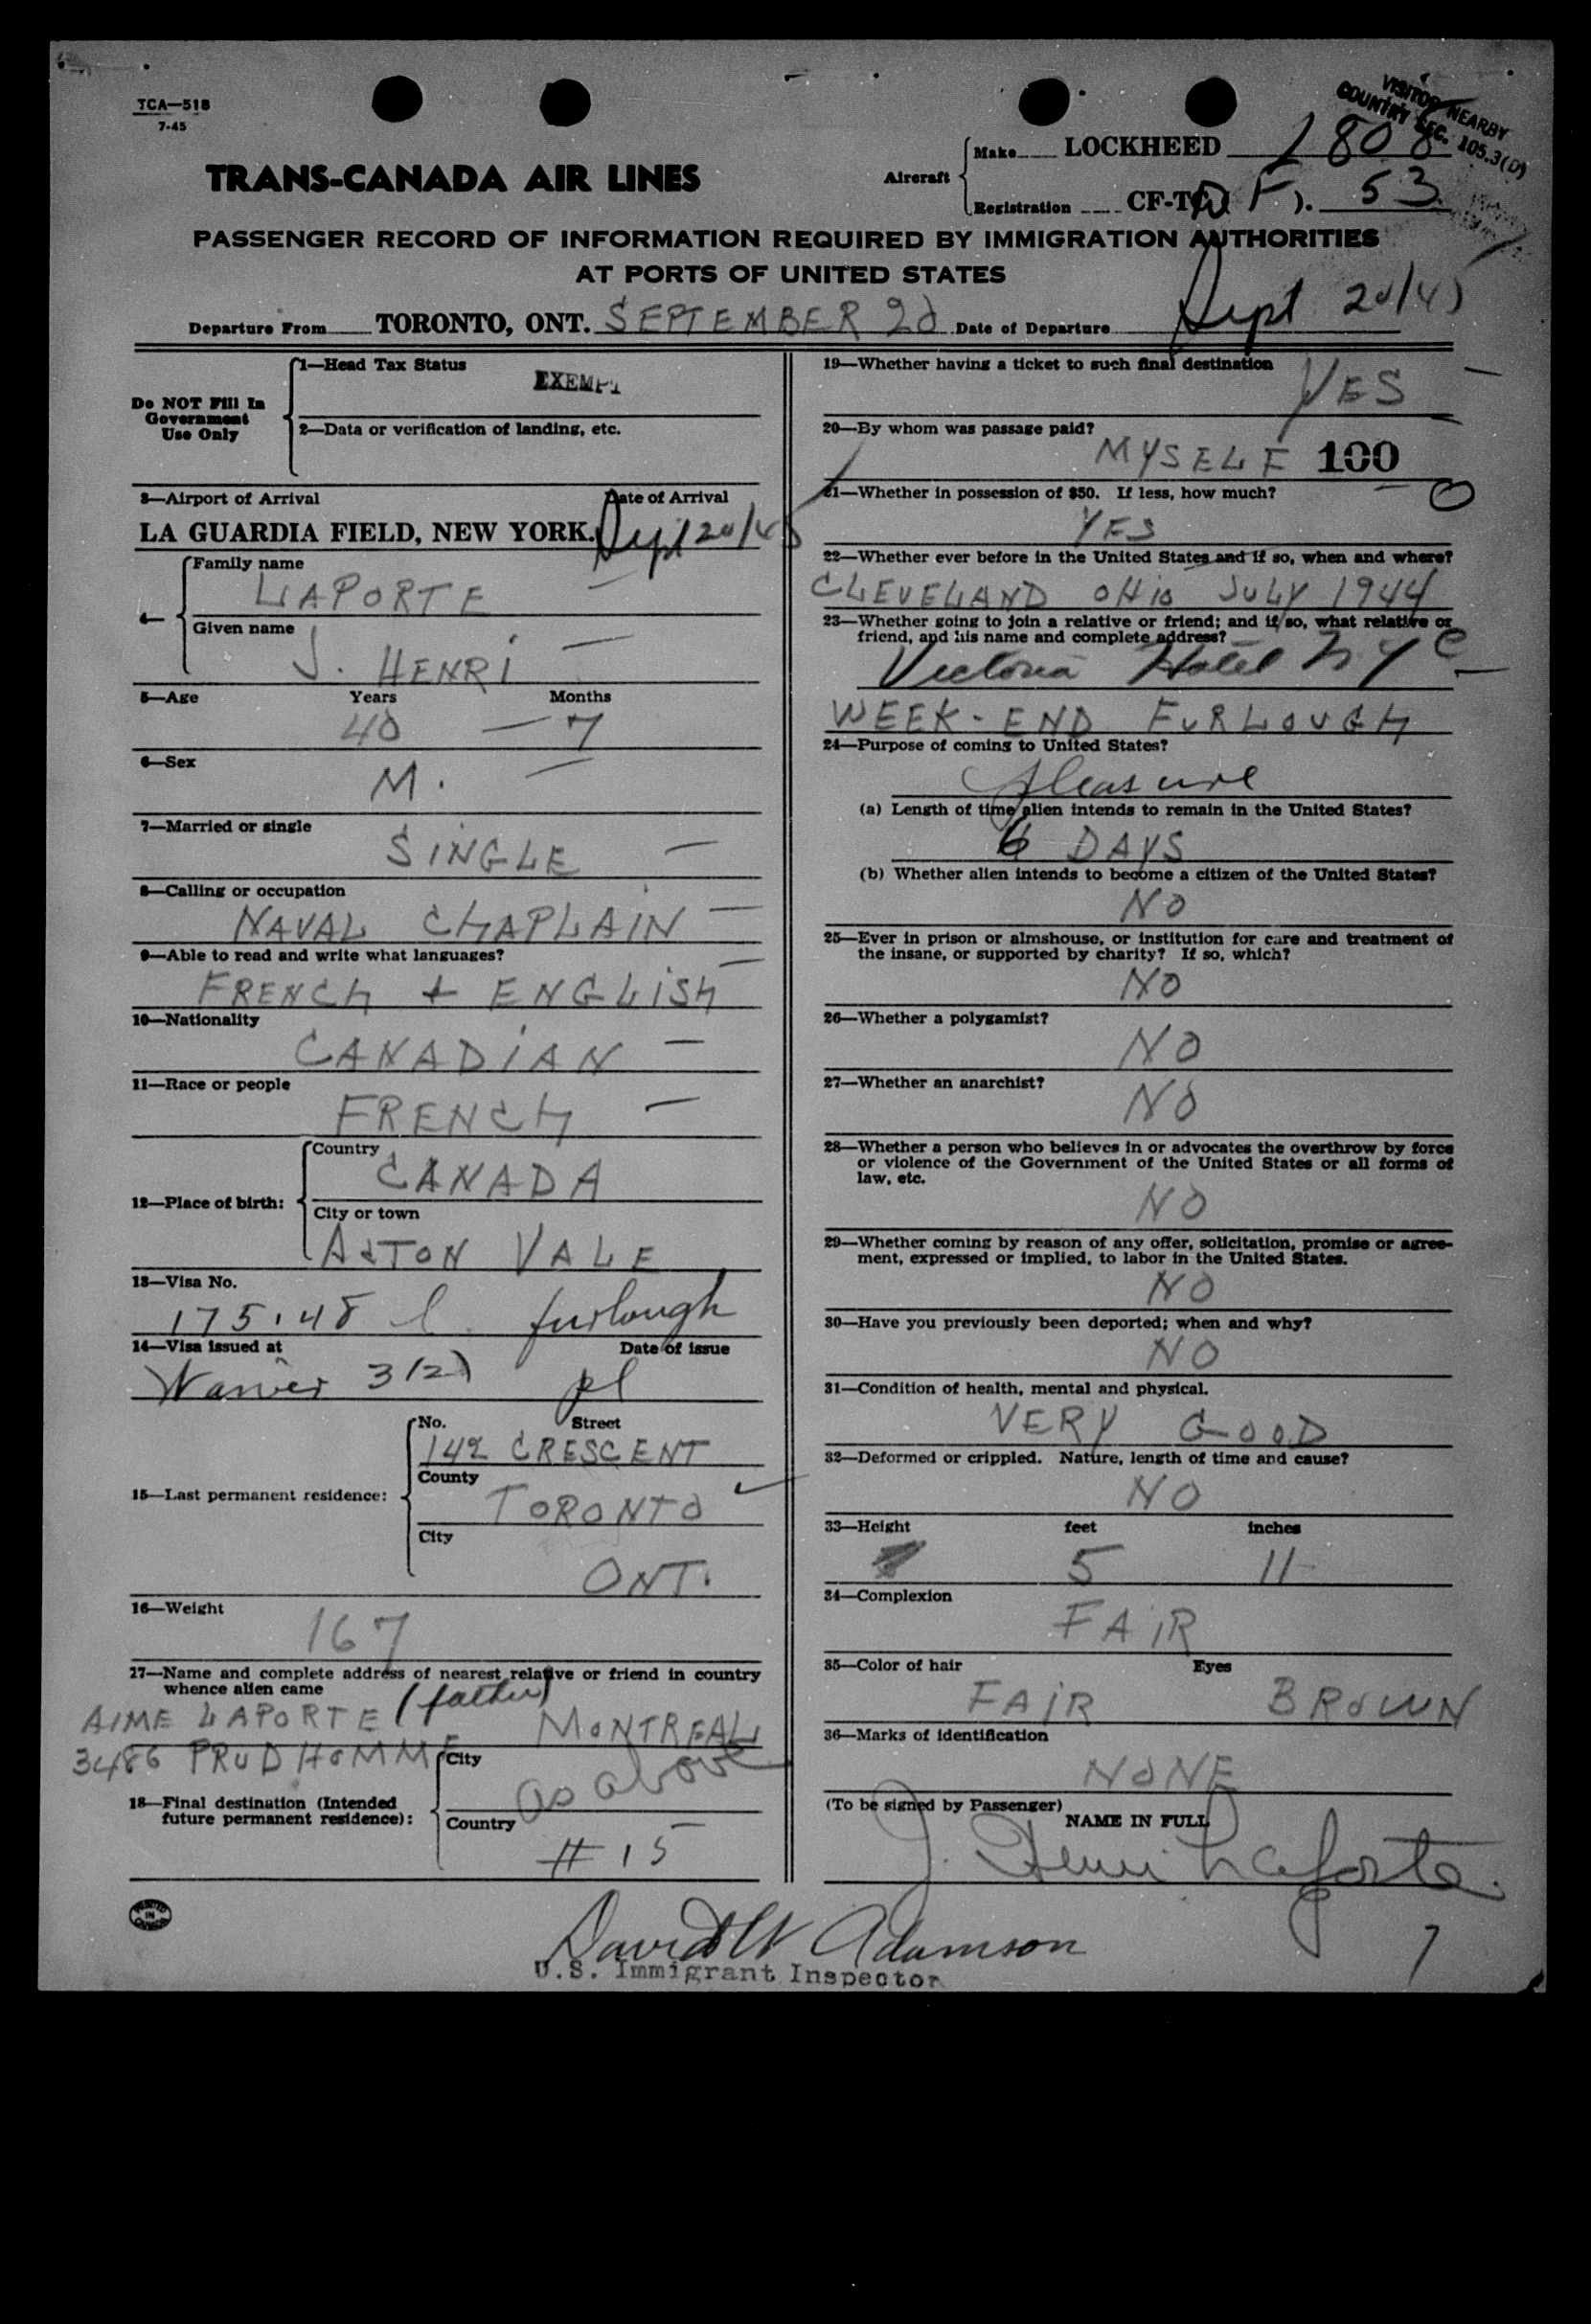 TCA—518
7-45
VISITOR NEARBY
COUNTRY SEC. 105.3(D)
TRANS-CANADA AIR LINES
Aircraft
Make LOCKHEED 1808
Registration CF-TC 53
PASSENGER RECORD OF INFORMATION REQUIRED BY IMMIGRATION AUTHORITIES
AT PORTS OF UNITED STATES
Departure From TORONTO, ONT. SEPTEMBER 20 Date of Departure Sept 20/45
Do NOT Fill In
Government
Use Only
1—Head Tax Status
EXEMPT
2—Data or verification of landing, etc.
3—Airport of Arrival Date of Arrival
LA GUARDIA FIELD, NEW YORK. Sept 20/45
4—
Family name
LAPORTE
Given name
J. HENRI
5—Age Years Months
40 — 7
6—Sex
M.
7—Married or single
SINGLE
8—Calling or occupation
NAVAL CHAPLAIN
9—Able to read and write what languages?
FRENCH + ENGLISH
10—Nationality
CANADIAN
11—Race or people
FRENCH
12—Place of birth:
Country
CANADA
City or town
ACTON VALE
13—Visa No.
175.48 furlough
14—Visa issued at Date of issue
3(2)
15—Last permanent residence:
No. Street
142 CRESCENT
County
TORONTO
City
ONT.
16—Weight
167
17—Name and complete address of nearest relative or friend in country
whence alien came
AIME LAPORTE (father)
3486 PRUDHOMME MONTREAL
18—Final destination (Intended
future permanent residence):
City
as above
Country
# 15
19—Whether having a ticket to such final destination
YES
20—By whom was passage paid?
MYSELF 100
21—Whether in possession of $50. If less, how much?
YES
22—Whether ever before in the United States and if so, when and where?
CLEVELAND OHIO JULY 1944
23—Whether going to join a relative or friend; and if so, what relative or
friend, and his name and complete address?
Victoria Hotel N Y C
WEEK-END FURLOUGH
24—Purpose of coming to United States?
pleasure
(a) Length of time alien intends to remain in the United States?
6 DAYS
(b) Whether alien intends to become a citizen of the United States?
NO
25—Ever in prison or almshouse, or institution for care and treatment of
the insane, or supported by charity? If so, which?
NO
26—Whether a polygamist?
NO
27—Whether an anarchist?
NO
28—Whether a person who believes in or advocates the overthrow by force
or violence of the Government of the United States or all forms of
law, etc.
NO
29—Whether coming by reason of any offer, solicitation, promise or agree-
ment, expressed or implied, to labor in the United States.
NO
30—Have you previously been deported; when and why?
NO
31—Condition of health, mental and physical.
VERY GOOD
32—Deformed or crippled. Nature, length of time and cause?
NO
33—Height feet inches
5 11
34—Complexion
FAIR
35—Color of hair Eyes
FAIR BROWN
36—Marks of identification
NONE
(To be signed by Passenger)
NAME IN FULL
J. Henri Laporte.
PRINTED
IN
CANADA
David W Adamson
U.S. Immigrant Inspector
7